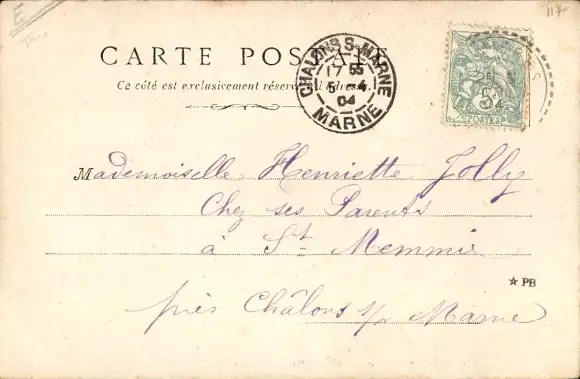 E
117
CARTE POSTALE
Ce côté est exclusivement réservé à l'adresse.
CHALONS-S-MARNE
17 55
5 -4
04
MARNE
POSTES
Mademoiselle Henriette Jolly
Chez ses Parents
à St Memmie
☆ PB
près Châlons s/ Marne